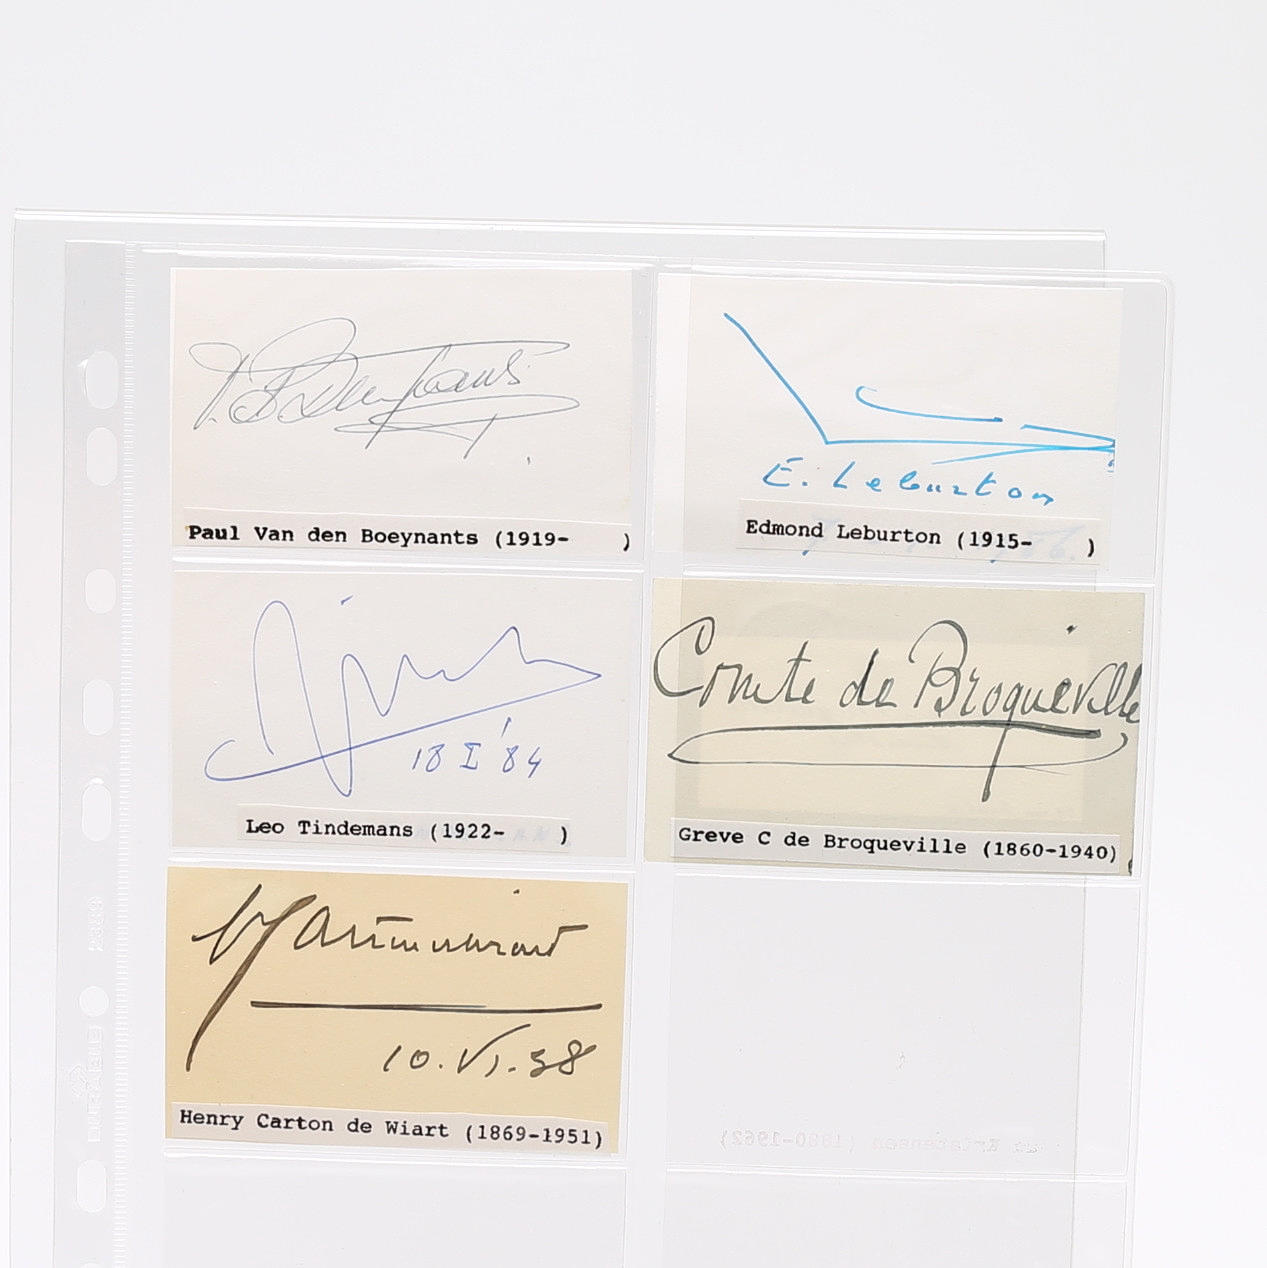 Paul Van den Boeynants (1919-    )
E. Leburton
Edmond Leburton (1915-    )
18 I '84
Leo Tindemans (1922-    )
Comte de Broqueville
Greve C de Broqueville (1860-1940)
10.VI.38
Henry Carton de Wiart (1869-1951)
(1880-1962)
2383